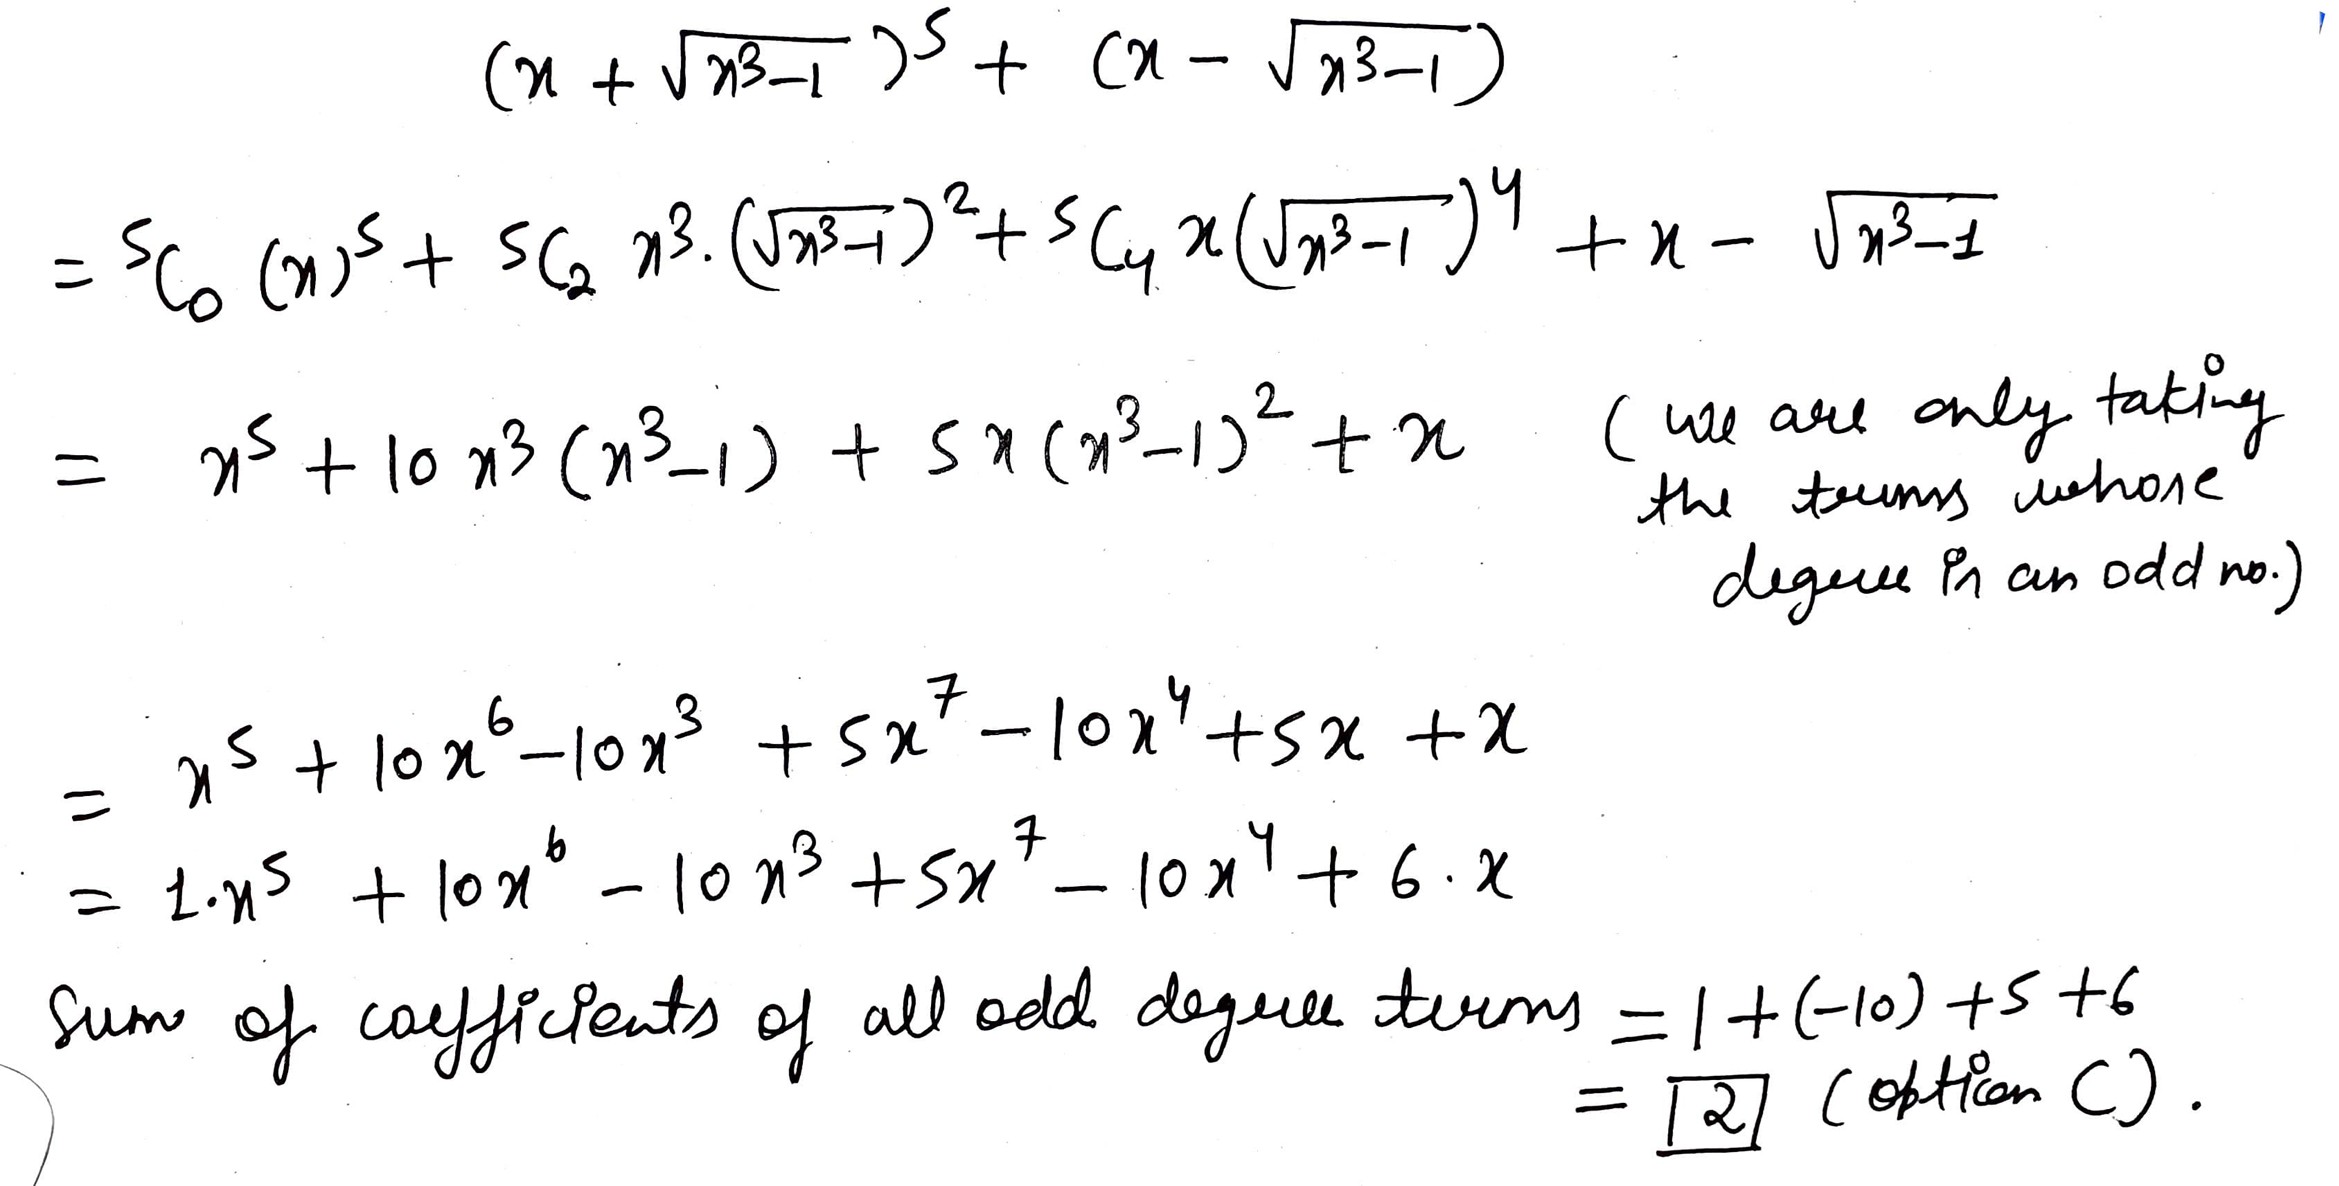 (x + √x³-1 )⁵ + (x - √x³-1)
= ⁵C₀ (x)⁵ + 5C₂ x³. (√x³-1)² + ⁵C₄ x (√x³-1)⁴ + x - √x³-1
= x⁵ + 10 x³ (x³-1) + 5x (x³-1)² + x ( we are only taking
the terms whose
degree is an odd no.)
= x⁵ + 10x⁶ - 10x³ + 5x⁷ - 10x⁴ + 5x + x
= 1.x⁵ + 10x⁶ - 10x³ + 5x⁷ - 10x⁴ + 6.x
Sum of coefficients of all odd degree terms = 1 + (-10) + 5 + 6
= 2 (option C).